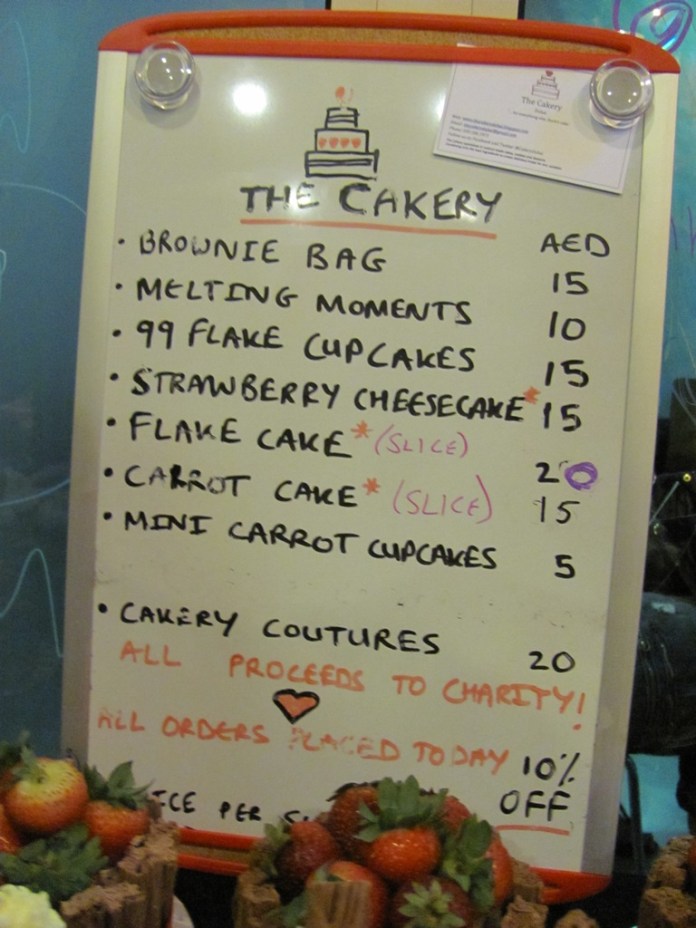 The Cakery
THE CAKERY
AED
• BROWNIE BAG 15
• MELTING MOMENTS 10
• 99 FLAKE CUPCAKES 15
• STRAWBERRY CHEESECAKE* 15
• FLAKE CAKE* (SLICE) 20
• CARROT CAKE* (SLICE) 15
• MINI CARROT CUPCAKES 5
• CAKERY COUTURES 20
ALL PROCEEDS TO CHARITY!
ALL ORDERS PLACED TODAY 10%
OFF
PER